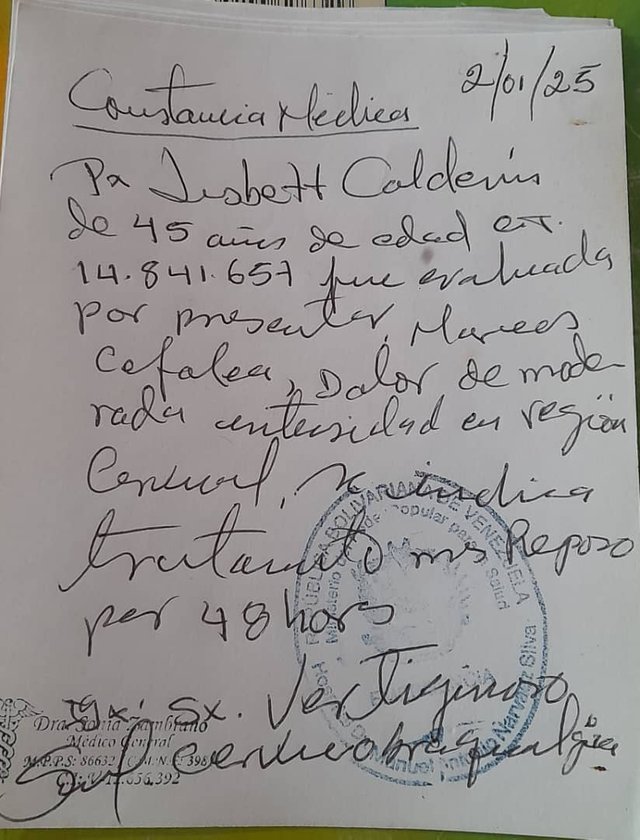 2/01/25
Constancia Médica
Pa Lisbett Calderón
de 45 años de edad C.I.
14.841.657 fue evaluada
por presentar Mareos
Cefalea, Dolor de mode-
rada intensidad en región
Cervical, se indica
tratamiento mas Reposo
por 48 horas
Idx: Sx. Vertiginoso
cervicobraquialgia
REPÚBLICA BOLIVARIANA DE VENEZUELA
Ministerio del Popular para Salud
Manuel Antonio Narváez Silva
Dra. Zambrano
Médico General
M.P.P.S: 86632